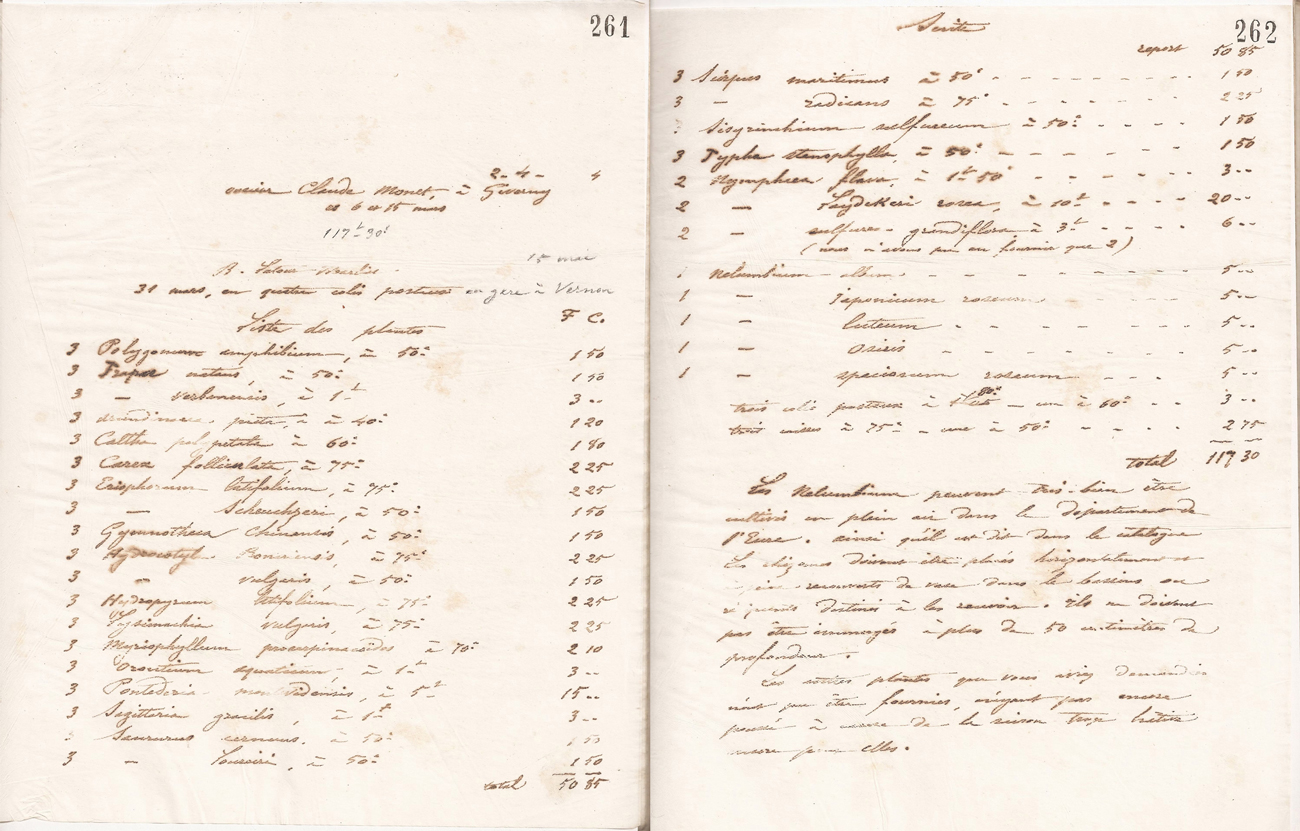 261
2-4- 4
Claude Monet, à Giverny
et 6 et 15 mars
117f 30c
15 mai
B. Latour-Marliac.
31 mars, en quatre colis postaux en gare à Vernon
Liste des plantes F C.
3 Polygonum amphibium, à 50c 1 50
3 Trapa natans, à 50c 1 50
3 — verbanensis, à 1f 3 --
3 à 40c 1 20
3 Caltha polypetala à 60c 1 80
3 Carex folliculata, à 75c 2 25
3 Eriophorum latifolium, à 75c 2 25
3 — Scheuchzeri, à 50c 1 50
3 Gymnotheca chinensis, à 50c 1 50
3 Hydrocotyle Bonariensis, à 75c 2 25
3 — vulgaris, à 50c 1 50
3 Hydropyrum latifolium, à 75c 2 25
3 Lysimachia vulgaris, à 75c 2 25
3 Myriophyllum proserpinacoides à 70c 2 10
3 Orontium aquaticum, à 1f 3 --
3 Pontederia montevidensis, à 5f 15 --
3 Sagittaria gracilis, à 1f 3 --
3 Saururus cernuus, à 50c 1 50
3 — Loureiri, à 50c 1 50
total 50 85
262
Suite
report 50 85
3 Scirpus maritimus à 50c - - - - - - - 1 50
3 — radicans à 75c - - - - - - - 2 25
3 Sisyrinchium sulfureum à 50c - - - - 1 50
3 Typha stenophylla, à 50c - - - - - - 1 50
2 Nymphea flava, à 1f 50c - - - - - - 3 --
2 — Laydekeri rosea, à 10f - - - - 20 --
2 — sulfurea grandiflora à 3f - - - 6 --
(nous n'avons pu en fournir que 2)
1 Nelumbium album - - - - - - - 5 --
1 — japonicum roseum - - - - 5 --
1 — luteum - - - - - - - 5 --
1 — Osiris - - - - - - - 5 --
1 — speciosum roseum - - - 5 --
trois colis postaux à 80c — un à 60c - - 3 --
trois caisses à 75c — une à 50c - - - - 2 75
total 117 30
Les Nelumbium peuvent très-bien être
cultivés en plein air dans le département de
l'Eure, ainsi qu'il est dit dans le catalogue
Les rhizomes doivent être placés horizontalement et
recouverts de vase dans le bassin ou
destinés à les recevoir. Ils ne doivent
pas être immergés à plus de 50 centimètres de
profondeur.
Les autres plantes que vous aviez demandées
n'ont pu être fournies, n'ayant pas encore
poussé à cause de la saison trop hâtive
encore pour elles.